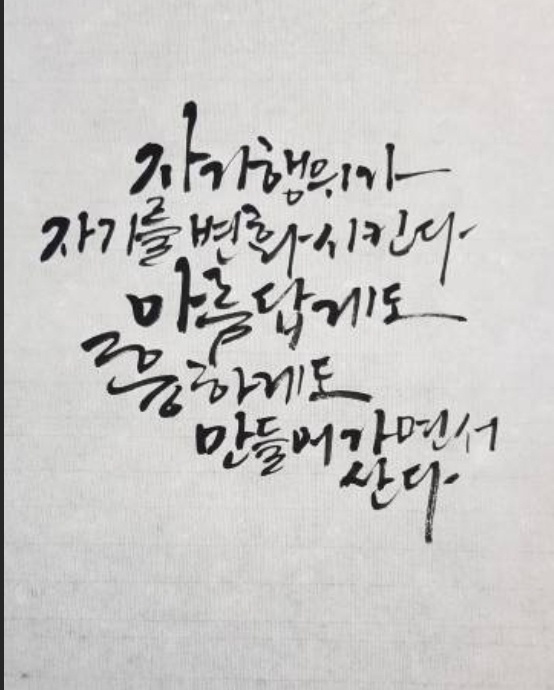 자기행위가
자기를 변화시킨다.
아름답게도
흉하게도
만들어가면서
산다.